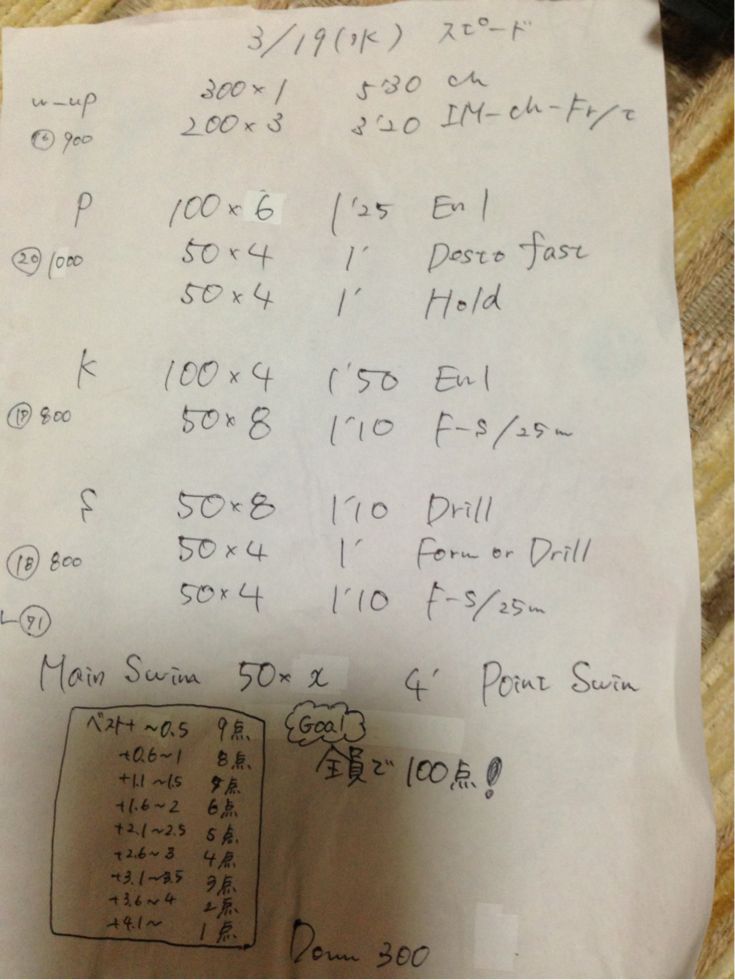 3/19(水) スピード
w-up 300×1 5'30 ch
200×3 3'20 IM-ch-Fr/t
⑯ 900
P 100×6 1'25 En1
⑳ 1000 50×4 1' Des to fast
50×4 1' Hold
K 100×4 1'50 En1
800 50×8 1'10 F-S/25m
S 50×8 1'10 Drill
⑱ 800 50×4 1' Form or Drill
50×4 1'10 F-S/25m
71
Main Swim 50×x 4' Point Swim
ベスト+ ~0.5 9点
+0.6~1 8点
+1.1~1.5 7点
+1.6~2 6点
+2.1~2.5 5点
+2.6~3 4点
+3.1~3.5 3点
+3.6~4 2点
+4.1~ 1点
Goal
全員で100点!
Down 300